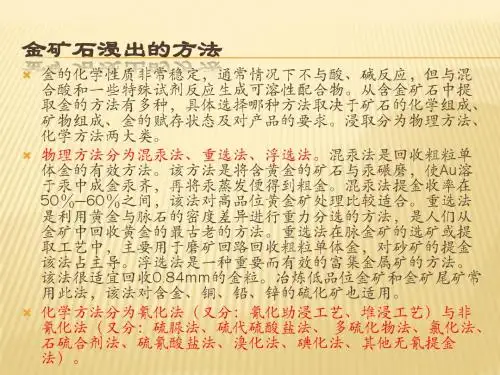 金矿石浸出的方法
金的化学性质非常稳定，通常情况下不与酸、碱反应，但与混
合酸和一些特殊试剂反应生成可溶性配合物。从含金矿石中提
取金的方法有多种，具体选择哪种方法取决于矿石的化学组成、
矿物组成、金的赋存状态及对产品的要求。浸取分为物理方法、
化学方法两大类。
物理方法分为混汞法、重选法、浮选法。混汞法是回收粗粒单
体金的有效方法。该方法是将含黄金的矿石与汞碾磨，使Au溶
于汞中成金汞齐，再将汞蒸发便得到粗金。混汞法提金收率在
50%—60%之间，该法对高品位黄金矿处理比较适合。重选法
是利用黄金与脉石的密度差异进行重力分选的方法，是人们从
金矿中回收黄金的最古老的方法。重选法在脉金矿的选矿或提
取工艺中，主要用于磨矿回路回收粗粒单体金，对砂矿的提金
该法占主导。浮选法是一种重要而有效的富集金属矿的方法。
该法很适宜回收0.84mm的金粒。冶炼低品位金矿和金矿尾矿常
用此法，该法对含金、铜、铅、锌的硫化矿也适用。
化学方法分为氰化法（又分：氰化助浸工艺、堆浸工艺）与非
氰化法（又分：硫脲法、硫代硫酸盐法、 多硫化物法、氯化法、
石硫合剂法、硫氰酸盐法、溴化法、碘化法、其他无氰提金
法）。